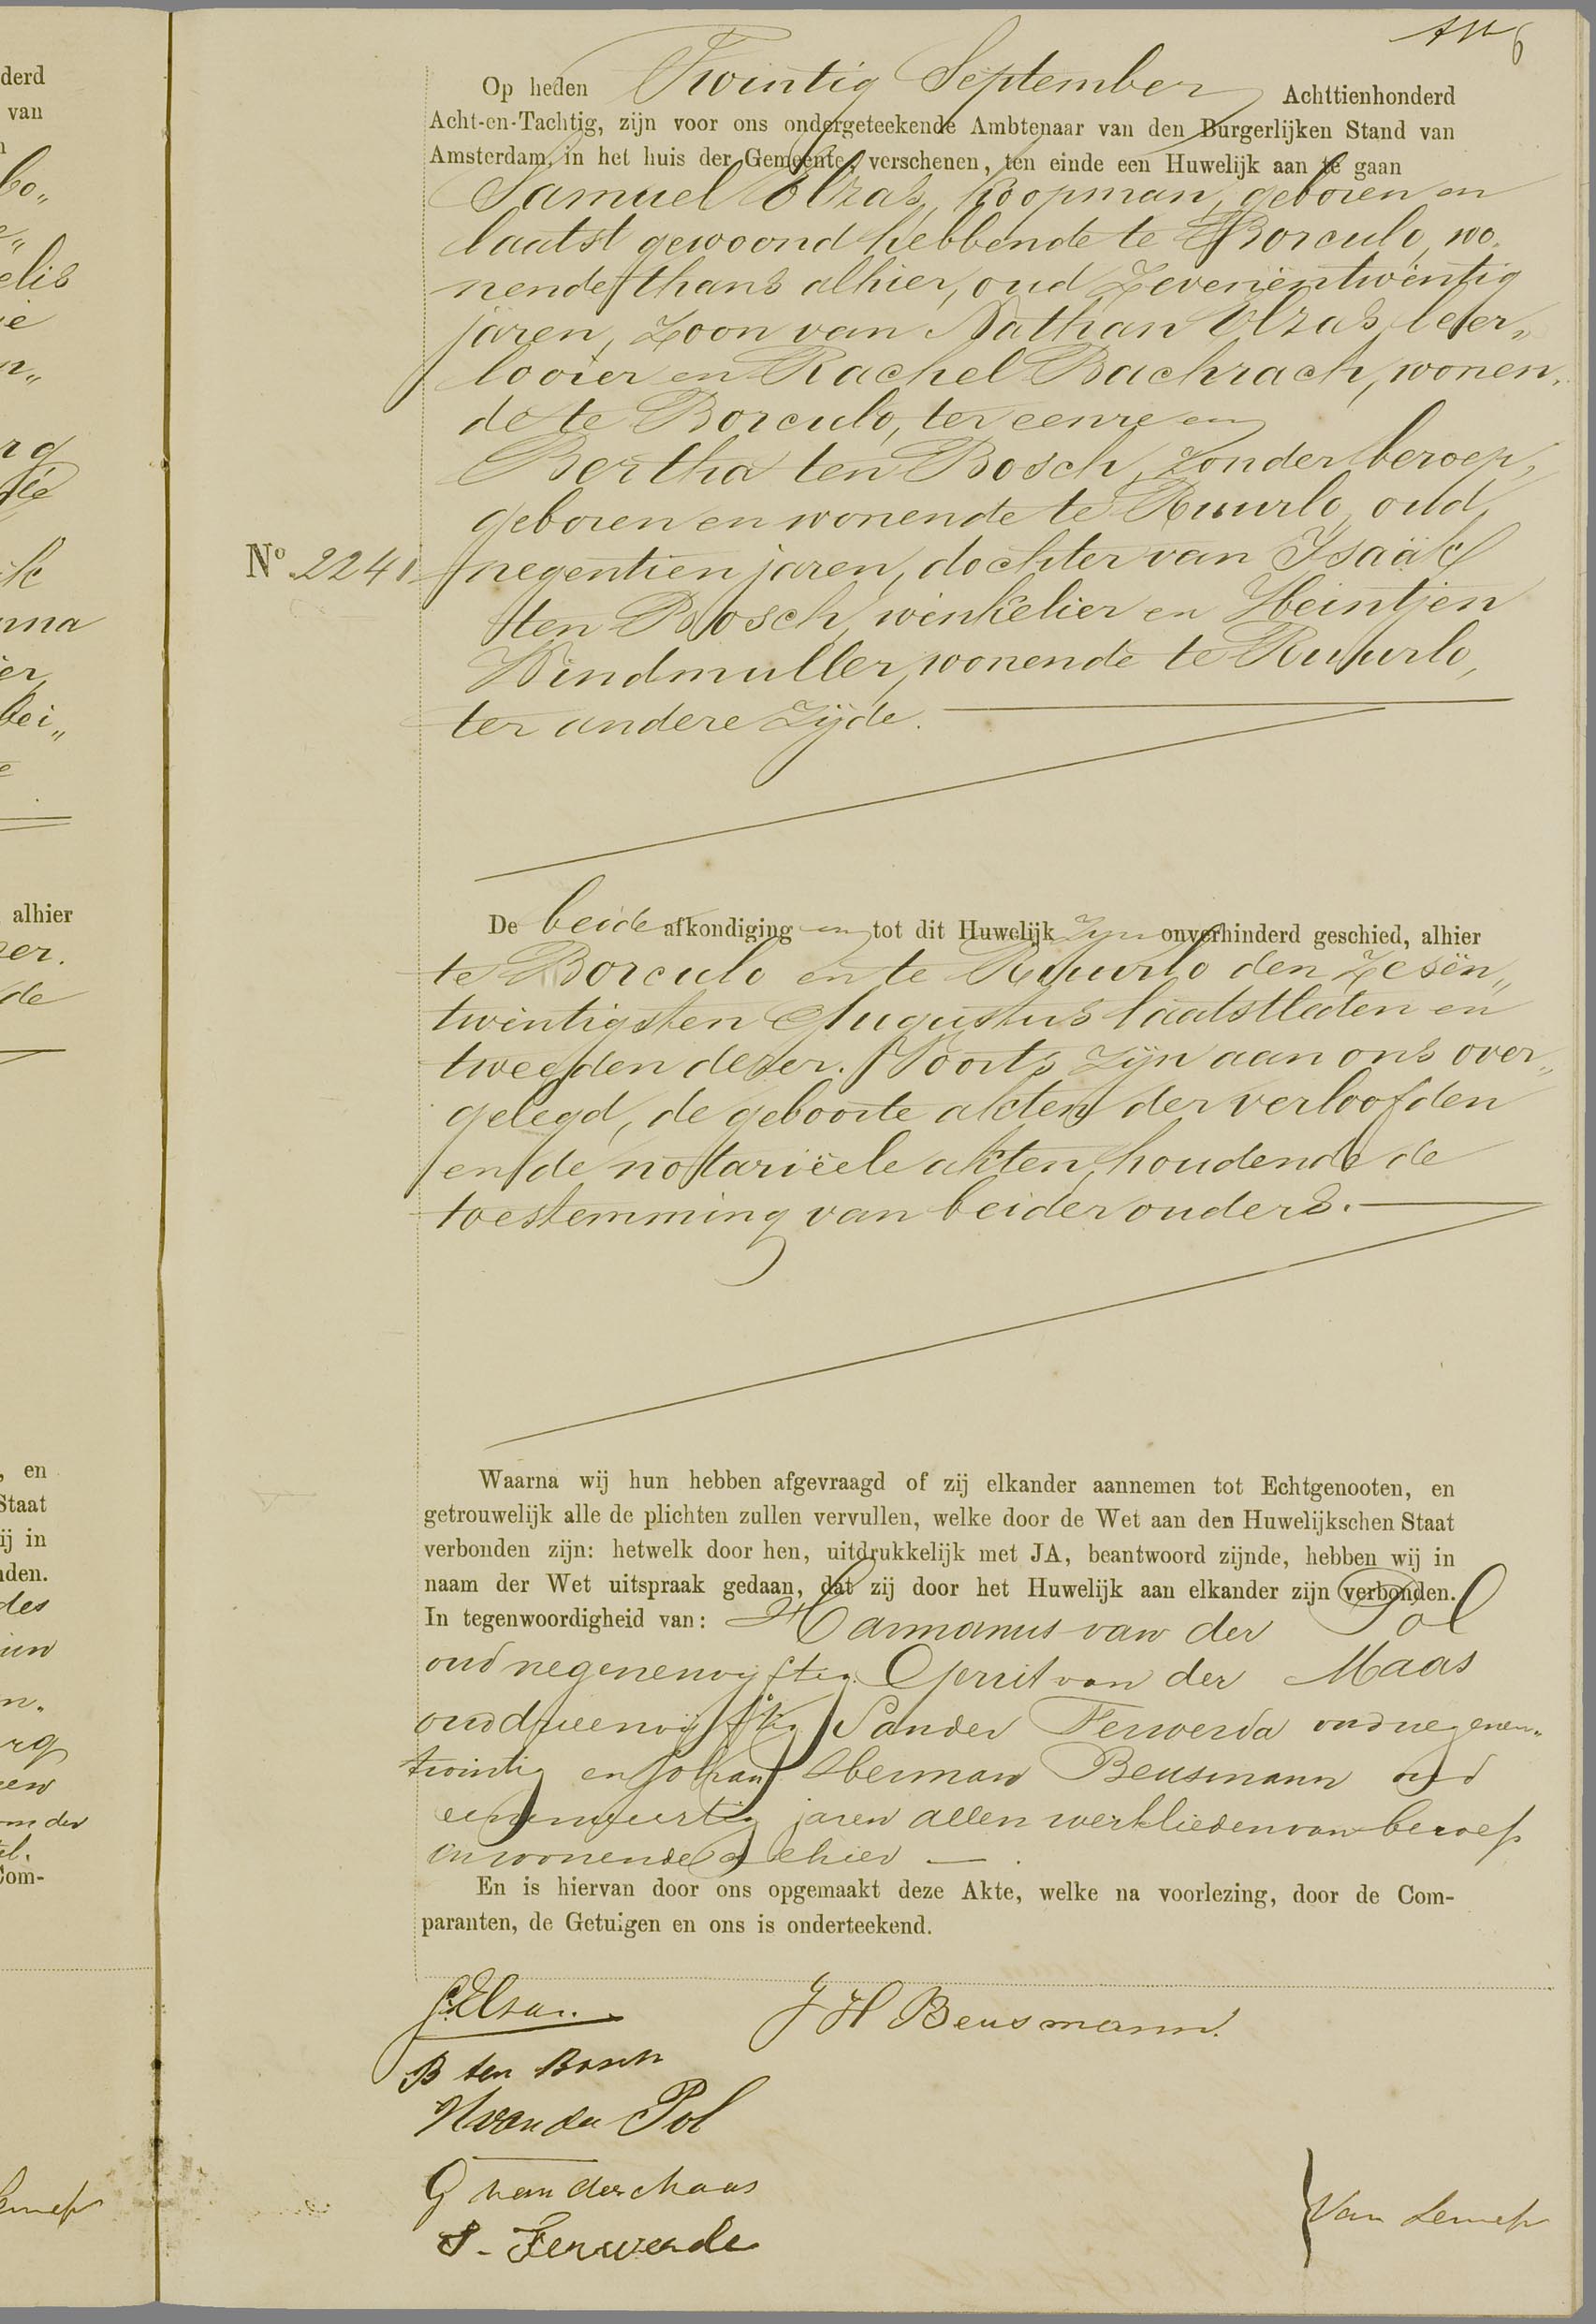 Op heden Twintig September Achttienhonderd
Acht-en-Tachtig, zijn voor ons ondergeteekende Ambtenaar van den Burgerlijken Stand van
Amsterdam, in het huis der Gemeente, verschenen, ten einde een Huwelijk aan te gaan
Samuel Elzas, koopman, geboren en
laatst gewoond hebbende te Borculo, wo„
nende thans alhier, oud Zevenëntwintig
jaren, Zoon van Nathan Elzas, leer„
looier en Rachel Bachrach, wonen„
de te Borculo, ter eenre en
Bertha ten Bosch, zonder beroep,
geboren en wonende te Ruurlo, oud
Nº 2241 negentien jaren, dochter van Isaäk
ten Bosch, winkelier en Heintjen
Windmuller, wonende te Ruurlo,
ter andere zijde.
De beide afkondiging en tot dit Huwelijk zijn onverhinderd geschied, alhier
te Borculo en te Ruurlo den Zesën„
twintigsten Augustus laatstleden en
tweeden dezer. Voorts zijn aan ons over„
gelegd, de geboorte akten der verloofden
en de notariëele akten, houdende de
toestemming van beider ouders.
Waarna wij hun hebben afgevraagd of zij elkander aannemen tot Echtgenooten, en
getrouwelijk alle de plichten zullen vervullen, welke door de Wet aan den Huwelijkschen Staat
verbonden zijn: hetwelk door hen, uitdrukkelijk met JA, beantwoord zijnde, hebben wij in
naam der Wet uitspraak gedaan, dat zij door het Huwelijk aan elkander zijn verbonden.
In tegenwoordigheid van: Harmanus van der Pol
oud negenenvijftig Gerrit van der Maas
oud drieenvijftig Sander Ferwerda oud negenen„
twintig en Johan Herman Beusmann oud
eenenveertig jaren allen werklieden van beroep
en wonende alhier
En is hiervan door ons opgemaakt deze Akte, welke na voorlezing, door de Com-
paranten, de Getuigen en ons is onderteekend.
S. Elzas.
J H Beusmann.
B ten Bosch
H van der Pol
G van der Maas
S. Ferwerda
Van Lennep